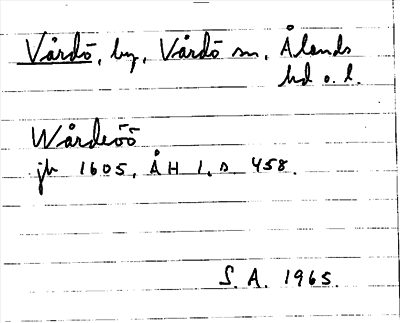 Vårdö, by, Vårdö sn, Ålands
hd o. l.
Wårdeöö
jb 1605, ÅH 1, s 458.
S. A. 1965.